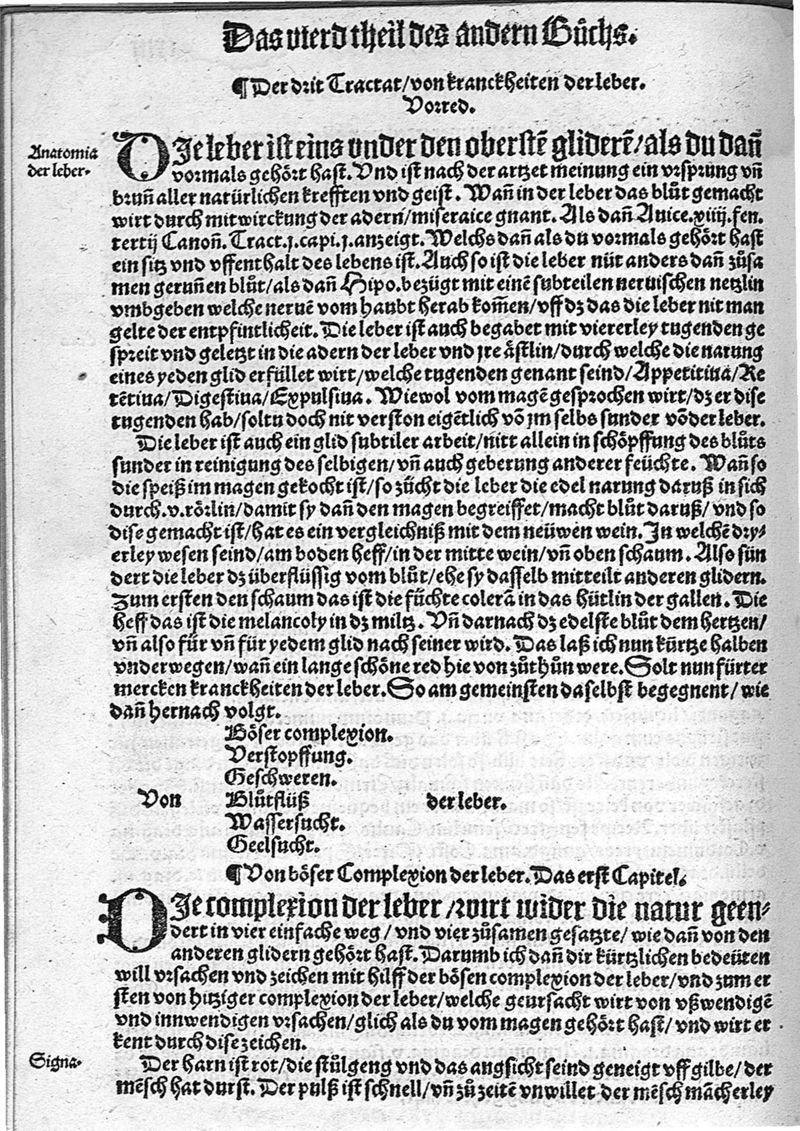 Das vierd theil des andern Bůchs.
¶ Der drit Tractat/von kranckheiten der leber.
Vorred.
Anatomia
der leber.
DJe leber ist eins vnder den oberstē gliderē/als du dañ
vormals gehört hast. Vnd ist nach der artzet meinung ein vrsprung vñ
brunn aller natürlichen krefften vnd geist. Wañ in der leber das blůt gemacht
wirt durch mitwirckung der adern/miseraice gnant. Als dañ Auice.xiiij.fen.
tertij Canoñ. Tract.j.capi.j.anzeigt. Welchs dañ als du vormals gehört hast
ein sitz vnd vffenthalt des lebens ist. Auch so ist die leber nüt anders dañ zůsa
men gerunnen blůt/als dañ Hipo.bezügt mit einē subteilen neruischen netzlin
vmbgeben welche neruē vom haubt herab kom̄en/vff dz das die leber nit man
gelte der entpfintlicheit. Die leber ist auch begabet mit viererley tugenden ge
spreit vnd geletzt in die adern der leber vnd jre ästlin/durch welche die narung
eines yeden glid erfüllet wirt/welche tugenden genant seind/Appetitiua/Re
tētiua/Digestiua/Expulsiua. Wiewol vom magē gesprochen wirt/dz er dise
tugenden hab/soltu doch nit verston eigētlich vō jm selbs sunder vō der leber.
Die leber ist auch ein glid subtiler arbeit/nitt allein in schöpffung des blůts
sunder in reinigung des selbigen/vñ auch geberung anderer feüchte. Wañ so
die speiß im magen gekocht ist/so zücht die leber die edel narung daruß in sich
durch.v.rörlin/damit sy dañ den magen begreiffet/macht blůt daruß/vnd so
dise gemacht ist/hat es ein vergleichniß mit dem neüwen wein. Jn welchē dry-
erley wesen seind/am boden heff/in der mitte wein/vñ oben schaum. Also sün
dert die leber dz überflüssig vom blůt/ehe sy dasselb mitteilt anderen glidern.
Zum ersten den schaum das ist die füchte colerā in das hütlin der gallen. Die
heff das ist die melancoly in dz miltz. Vñ darnach dz edelste blůt dem hertzen/
vñ also für vñ für yedem glid nach seiner wird. Das laß ich nun kürtze halben
vnderwegen/wañ ein lange schöne red hie von zůthůn were. Solt nun fürter
mercken kranckheiten der leber. So am gemeinsten daselbst begegnent/wie
dañ hernach volgt.
Böser complexion.
Verstopffung.
Geschweren.
Von Blůtflüß der leber.
Wassersucht.
Geelsucht.
¶ Von böser Complexion der leber. Das erst Capitel.
DJe complexion der leber/wirt wider die natur geen-
dert in vier einfache weg/vnd vier zůsamen gesatzte/wie dañ von den
anderen glidern gehört hast. Darumb ich dañ dir kürtzlichen bedeüten
will vrsachen vnd zeichen mit hilff der bösen complexion der leber/vnd zum er
sten von hitziger complexion der leber/welche geursacht wirt von vßwendigē
vnd innwendigen vrsachen/glich als du vom magen gehört hast/vnd wirt er
kent durch dise zeichen.
Signa.
Der harn ist rot/die stůlgeng vnd das angsicht seind geneigt vff gilbe/der
mēsch hat durst. Der pulß ist schnell/vñ zů zeitē vnwillet der mēsch mācherley